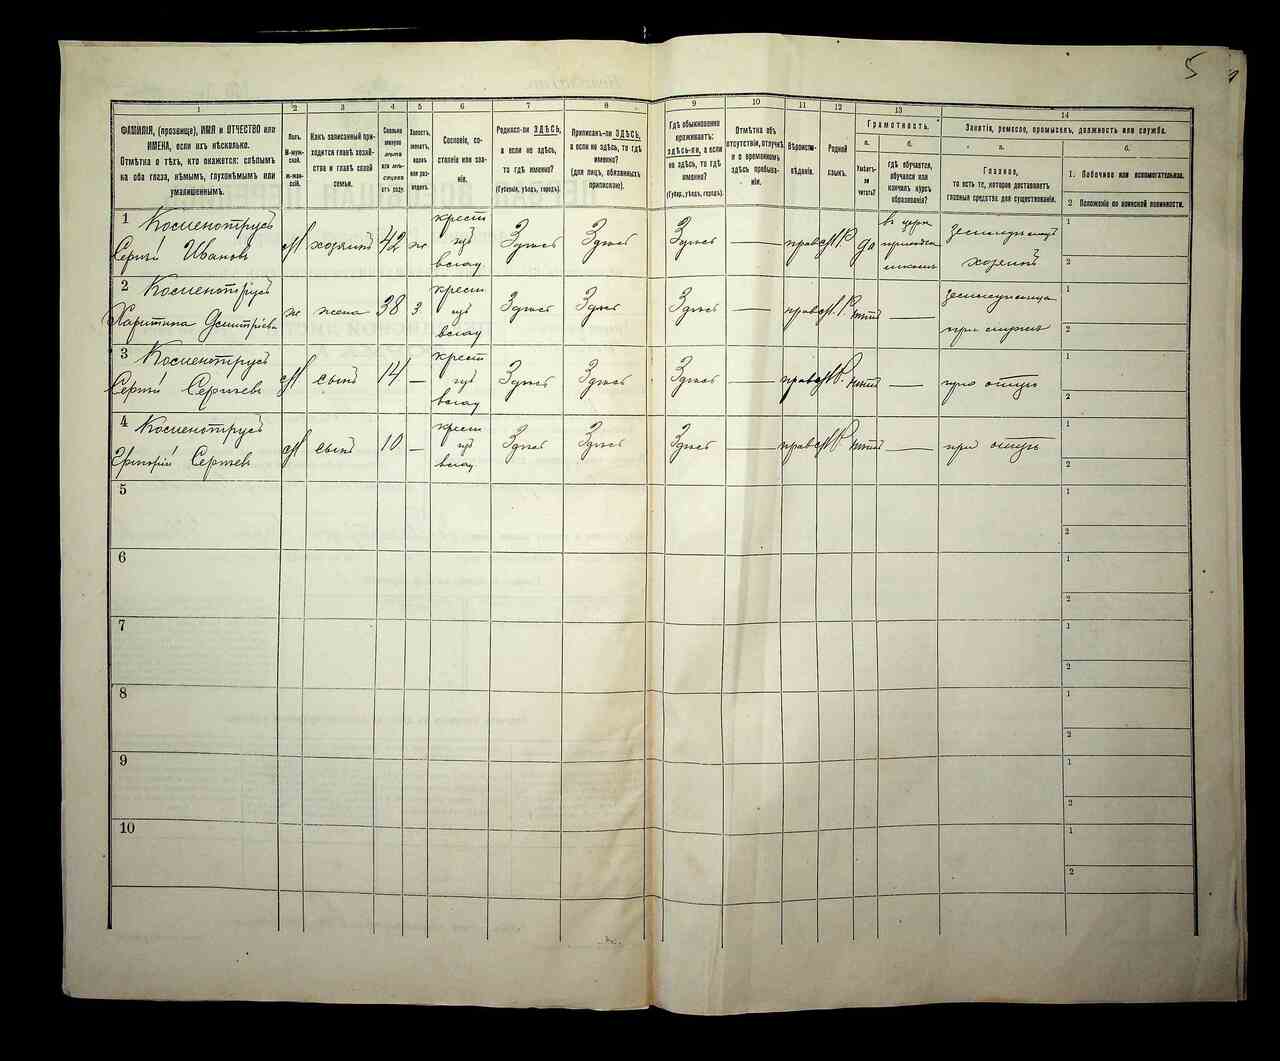 5
1
2
3
4
5
6
7
8
9
10
11
12
13
14
ФАМИЛІЯ, (прозвище), ИМЯ и ОТЧЕСТВО или
ИМЕНА, если ихъ нѣсколько.
Отмѣтка о тѣхъ, кто окажется: слѣпымъ
на оба глаза, нѣмымъ, глухонѣмымъ или
умалишеннымъ.
Полъ.
М-муж-
ской.
Ж-жен-
скій.
Какъ записанный при-
ходится главѣ хозяй-
ства и главѣ своей
семьи.
Сколько
минуло
лѣтъ
или мѣ-
сяцевъ
отъ роду.
Холостъ,
женатъ,
вдовъ
или раз-
веденъ.
Сословіе, со-
стояніе или зва-
ніе.
Родился-ли ЗДѢСЬ,
а если не здѣсь,
то гдѣ именно?
(Губернія, уѣздъ, городъ).
Приписанъ-ли ЗДѢСЬ,
а если не здѣсь, то гдѣ
именно?
(для лицъ, обязанныхъ
припискою).
Гдѣ обыкновенно
проживаетъ:
здѣсь-ли, а если
не здѣсь, то гдѣ
именно?
(Губер., уѣздъ, городъ).
Отмѣтка объ
отсутствіи, отлучкѣ
и о временномъ
здѣсь пребыва-
ніи.
Вѣроиспо-
вѣданіе.
Родной
языкъ.
Грамотность.
а.
Умѣетъ-
ли
читать?
б.
Гдѣ обучается,
обучался или
кончилъ курсъ
образованія?
Занятіе, ремесло, промыселъ, должность или служба.
а.
Главное,
то есть то, которое доставляетъ
главныя средства для существованія.
б.
1. Побочное или вспомогательное.
2 Положеніе по воинской повинности.
1
Сергѣй Ивановъ
М
хозяинъ
42
ж
крест
Здѣсь
Здѣсь
Здѣсь
—
прав
да
хозяинъ
1
2
2
ж
жена
38
з
крест
Здѣсь
Здѣсь
Здѣсь
—
прав
нѣтъ
—
при мужѣ
1
2
3
Сергѣй Сергѣевъ
М
сынъ
14
—
крест
Здѣсь
Здѣсь
Здѣсь
—
прав
нѣтъ
—
при отцѣ
1
2
4
Григорій Сергѣев
М
сынъ
10
—
крест
Здѣсь
Здѣсь
Здѣсь
—
прав
нѣтъ
—
при отцѣ
1
2
5
1
2
6
1
2
7
1
2
8
1
2
9
1
2
10
1
2